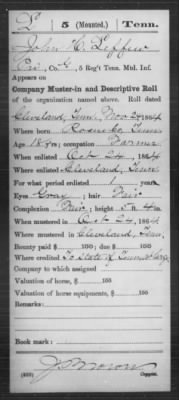 L | 5 (Mounted.) | Tenn.
John H. Leffew
Pvt, Co. G, 5 Reg't Tenn. Mtd. Inf.
Appears on
Company Muster-in and Descriptive Roll
of the organization named above. Roll dated
Cleveland, Tenn. Nov 20, 1864
Where born Roane Co Tenn
Age 18 y'rs; occupation Farmer
When enlisted Oct 24, 1864
Where enlisted Cleveland, Tenn.
For what period enlisted 1 years.
Eyes Gray; hair Fair
Complexion Fair; height 5 ft. 4 in.
When mustered in Oct 24, 1864
Where mustered in Cleveland, Tenn.
Bounty paid $ 100; due $ 100
Where credited To State of Tenn
Company to which assigned
Valuation of horse, $ 100
Valuation of horse equipments, $ 100
Remarks:
Book mark:
Copyist.